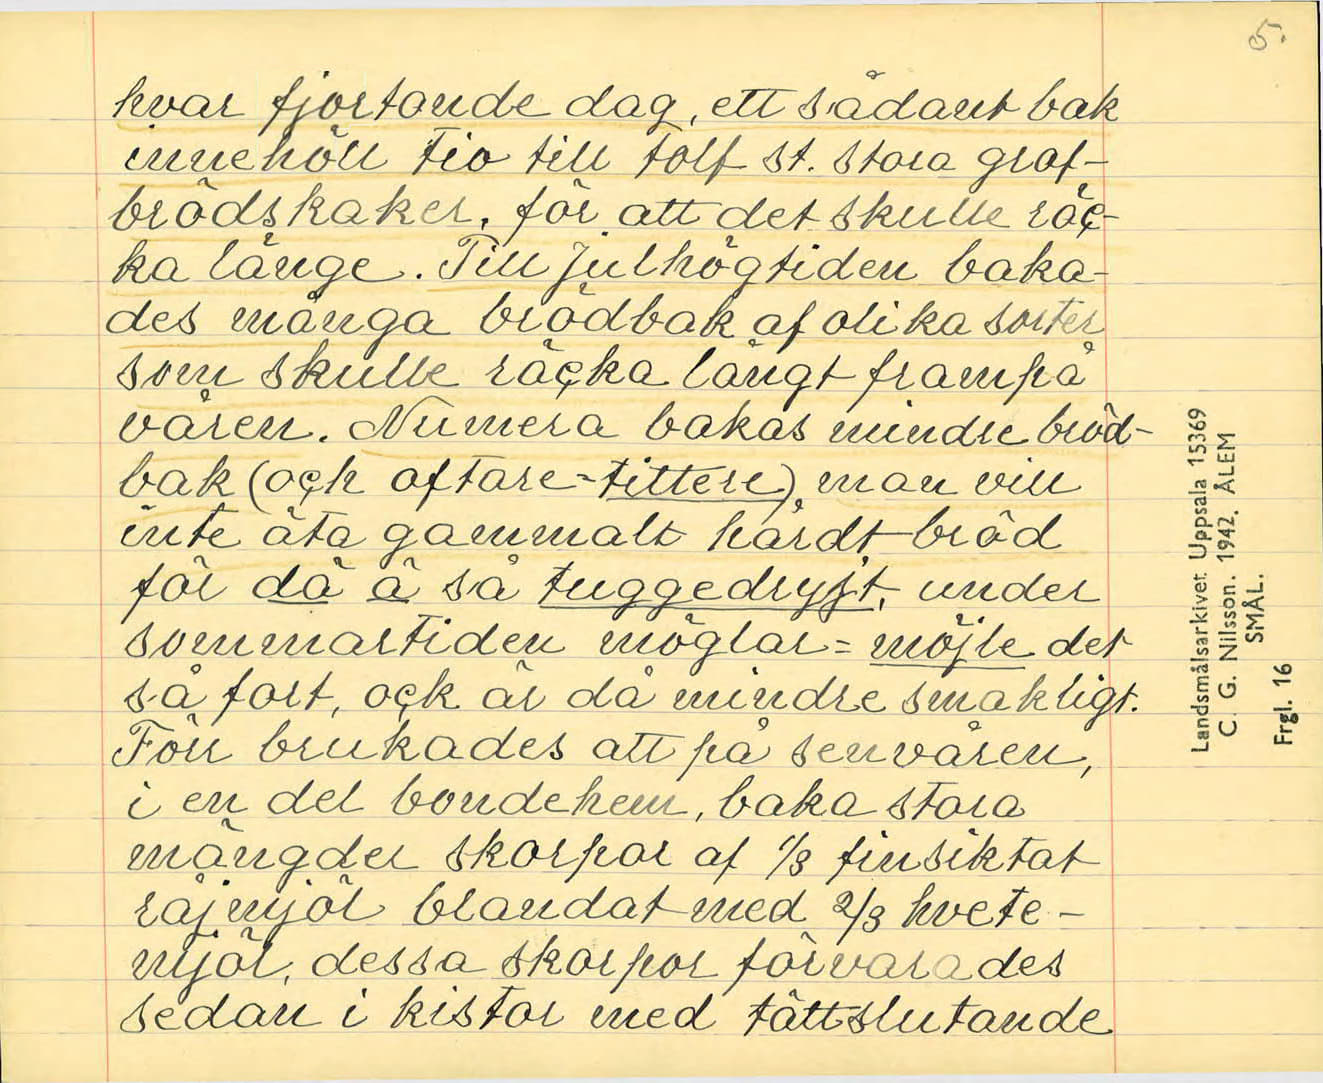 5.
hvar fjortonde dag, ett sådant bak
innehöll tio till tolf st. stora grof-
brödskakor, för att det skulle räc-
ka länge. Till Julhögtiden baka-
des många brödbak af olika sorter
som skulle räcka långt frampå
våren. Numera bakas mindre bröd-
bak (och oftare=tittere) man vill
inte äta gammalt hårdt bröd
för dä ä så tuggedrygt, under
sommartiden möglar=möjle det
så fort, ock är då mindre smakligt.
Förr brukades att på senvåren,
i en del bondehem, baka stora
mängder skorpor af 1/3 finsiktat
rajmjöl blandat med 2/3 hvete-
mjöl, dessa skorpor förvarades
sedan i kistor med tättslutande
Landsmålsarkivet Uppsala 15369
C. G. Nilsson. 1942. ÅLEM
SMÅL.
Frgl. 16